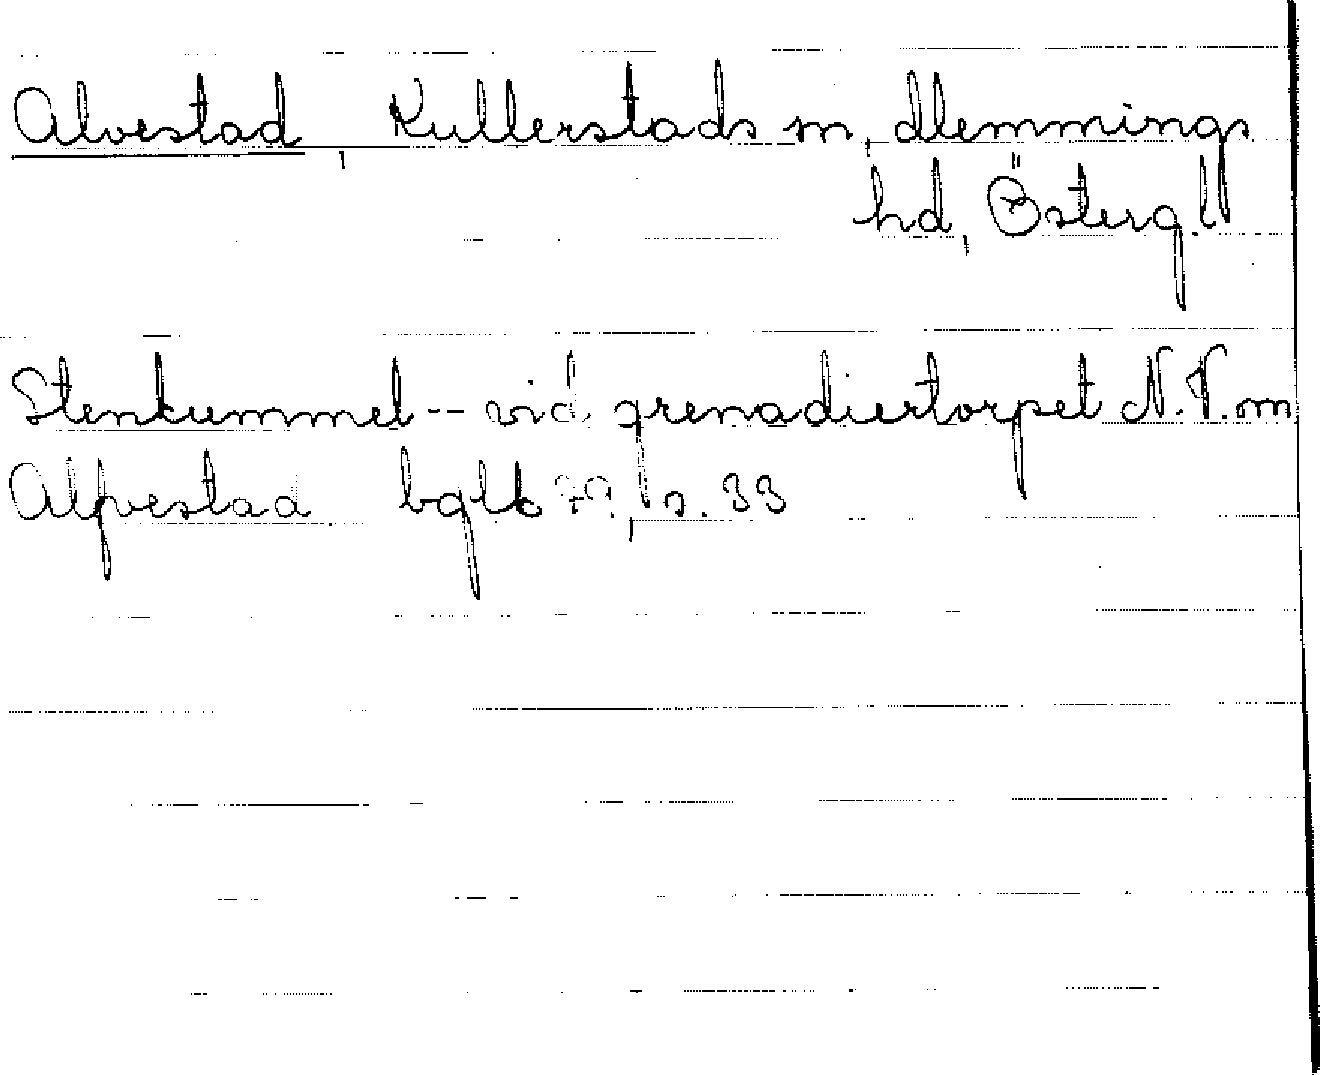 Alvestad, Kullerstads sn, Memmings
hd, Östergl
Stenkummel -- vid grenadiertorpet N.V. om
Alfvestad bglb 79, s. 33